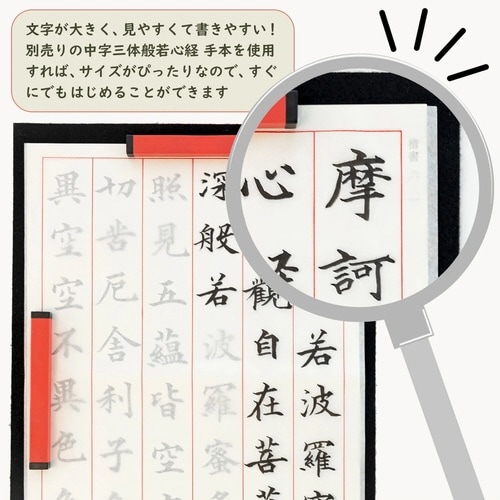 文字が大きく、見やすくて書きやすい！
別売りの中字三体般若心経 手本を使用
すれば、サイズがぴったりなので、すぐ
にでもはじめることができます
楷書
摩訶
若波羅
心
觀自在菩
深般若波羅蜜多
照見五蘊皆空
切苦厄舎利子
異空空不異色